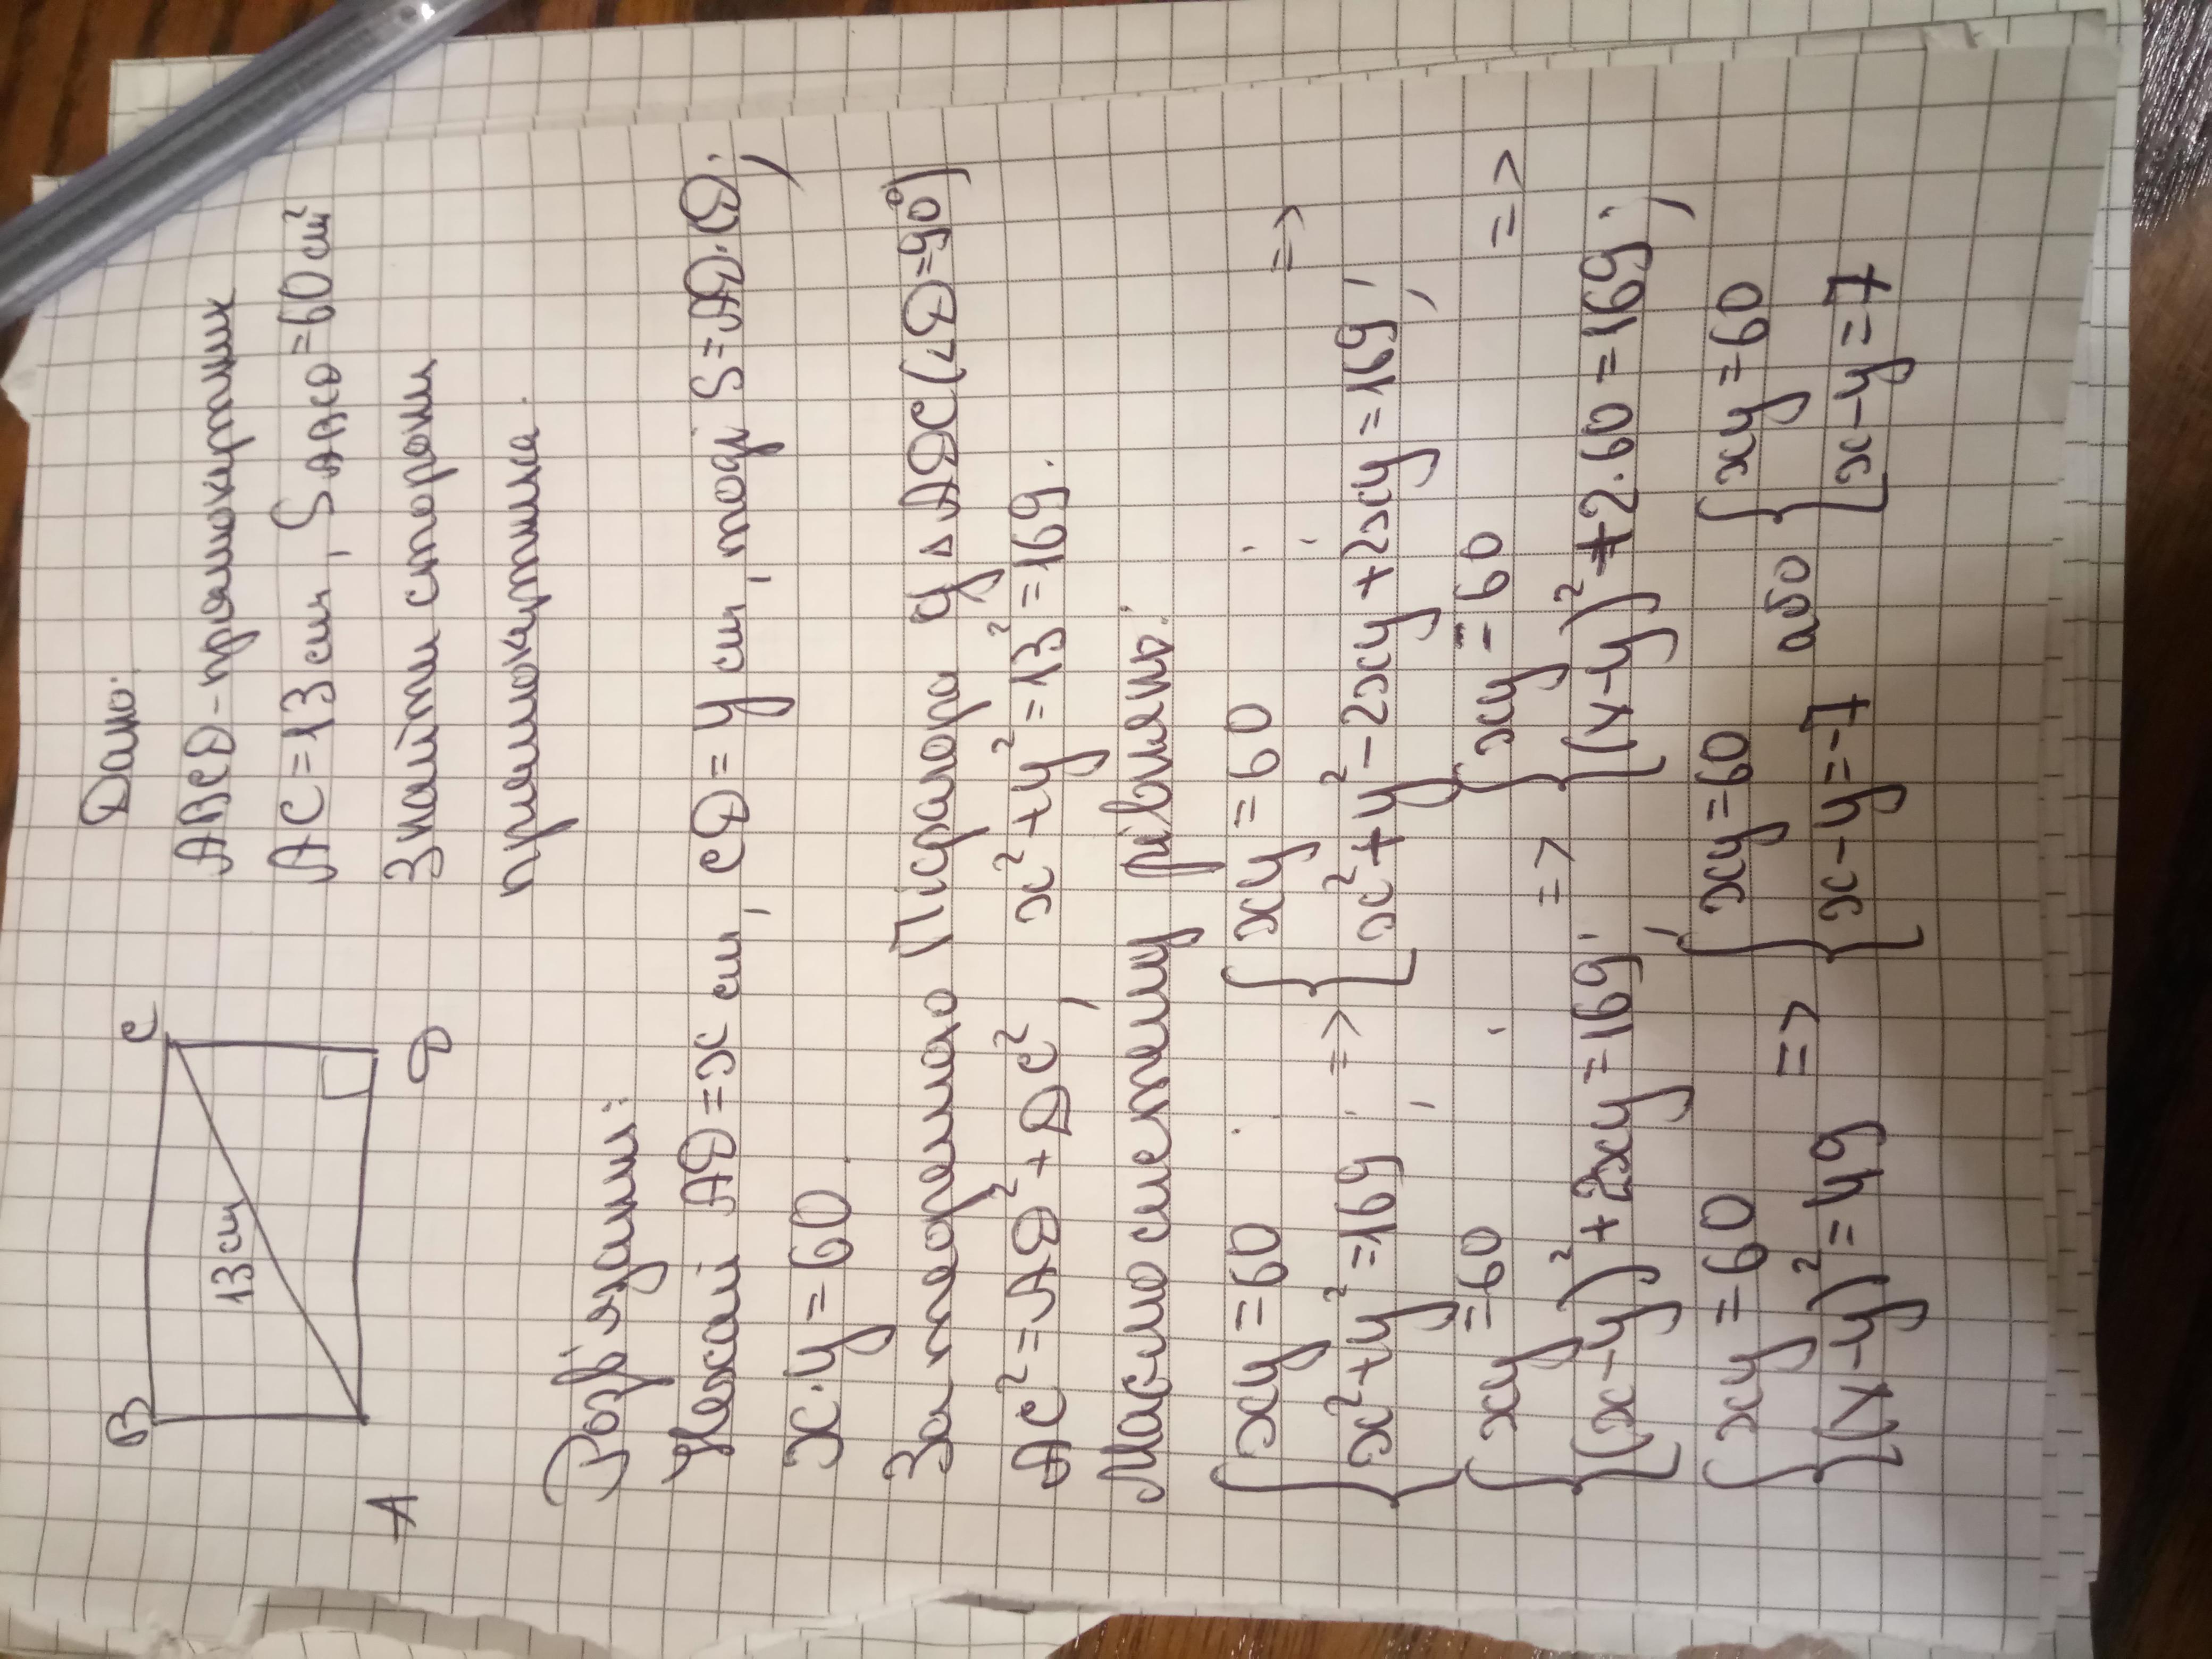 B C
13 см
A D
Дано:
ABCD - прямокутник
AC = 13 см, S ABCD = 60 см²
Знайти сторони
прямокутника.
Розв'язання:
Нехай AD = x см, CD = y см, тоді S = AD·CD;
x·y = 60.
За теоремою Піфагора у △ADC (∠D = 90°)
AC² = AD² + DC², x² + y² = 13² = 169.
Маємо систему рівнянь:
{ xy = 60; x² + y² = 169; => { xy = 60; x² + y² - 2xy + 2xy = 169; =>
{ xy = 60; (x-y)² + 2xy = 169; => { xy = 60 (x-y)² + 2·60 = 169; =>
{ xy = 60 (x-y)² = 49 => { xy = 60 x - y = -7 або { xy = 60 x - y = 7